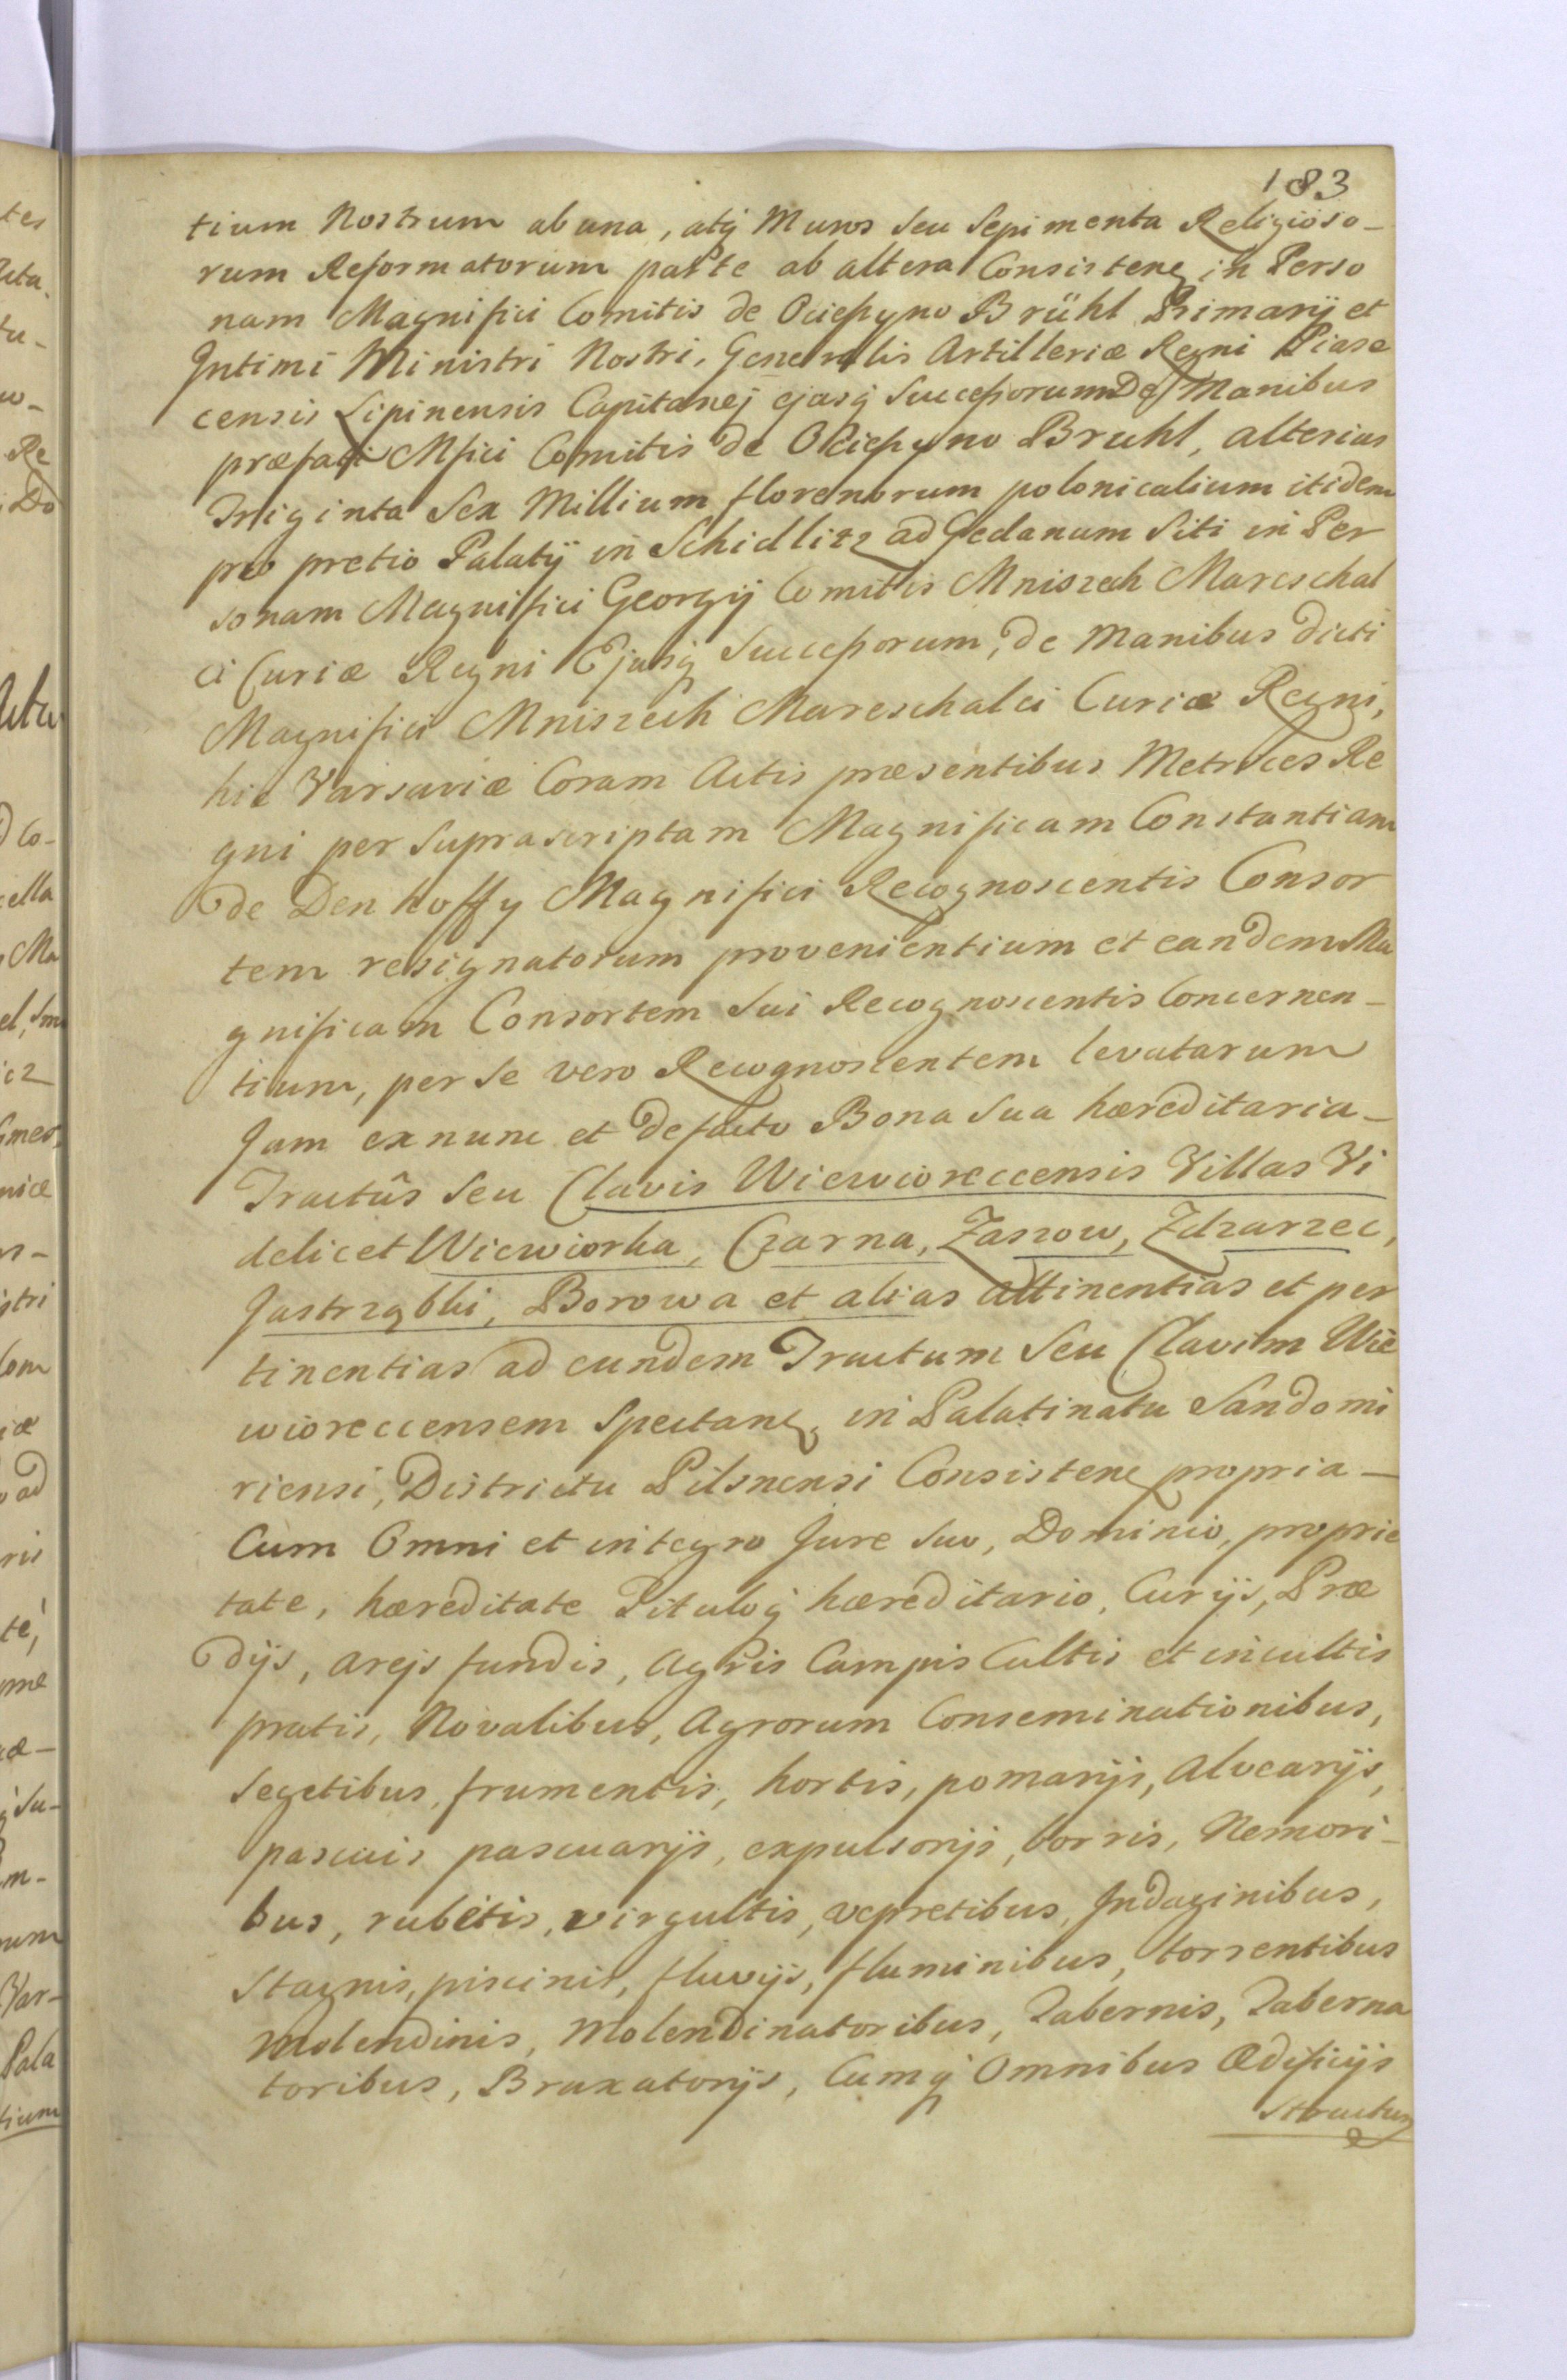 183
tium Nostrum ab una, atq̃ Muros seu Sepimenta Religioso-
rum Reformatorum parte ab altera Consisteñ in Perso
nam Magnifici Comitis de Ocieszyno Brühl Primarij et
Intimi Ministri Nostri, Generalis Artilleriæ Regni Piase
censis Lipinensis Capitanej ejusq̃ Successorum De Manibus
præfati Mfici Comitis de Ocieszyno Bruhl, alterius
Triginta Sex Millium florenorum polonicalium itidem
pro pretio Palatij in Schidlitz ad Gedanum Siti in Per
sonam Magnifici Georgij Comitis Mniszech Mareschal
ci Curiæ Regni Ejusq̃ Successorum, de Manibus dicti
Magnifici Mniszech Mareschalci Curiæ Regni,
hic Varsaviæ Coram Actis præsentibus Metrices Re
gni per Suprascriptam Magnificam Constantiam
de Denhoffy Magnifici Recognoscentis Consor
tem resignatorum provenientium et eandem Ma
gnificam Consortem Sui Recognoscentis Concernen-
tium, per Se vero Recognoscentem levatarum
Jam ex nunc et de facto Bona Sua hæreditaria-
Tractûs Seu Clavis Wiewioreccensis Villas Vi
delicet Wiewiorka, Czarna, Zaszow, Zdzarzec,
Jastrząbki, Borowa et alias attinentias et per
tinentias ad eundem Tractum Seu Clavim Wie
wioreccensem Spectañ, in Palatinatu Sandomi
riensi, Districtu Pilsnensi Consisteñ propria-
Cum Omni et integro Jure Suo, Dominio, proprie
tate, hæreditate Tituloq̃ hæreditario, Curijs, Præ
dijs, arejs fundis, agris Campis Cultis et incultis
pratis, Novalibus, Agrorum Conseminationibus,
Segetibus, frumentis, hortis, pomarijs, Alvearijs,
pascuis pascuarijs, expulsorijs, borris, Nemori-
bus, rubetis, virgultis, vepretibus, Indaginibus,
Stagnis, piscinis, fluvijs, fluminibus, torrentibus
Molendinis, Molendinatoribus, Tabernis, Taberna
toribus, Braxatorijs, Cumq̃ Omnibus Ædificijs
Structur